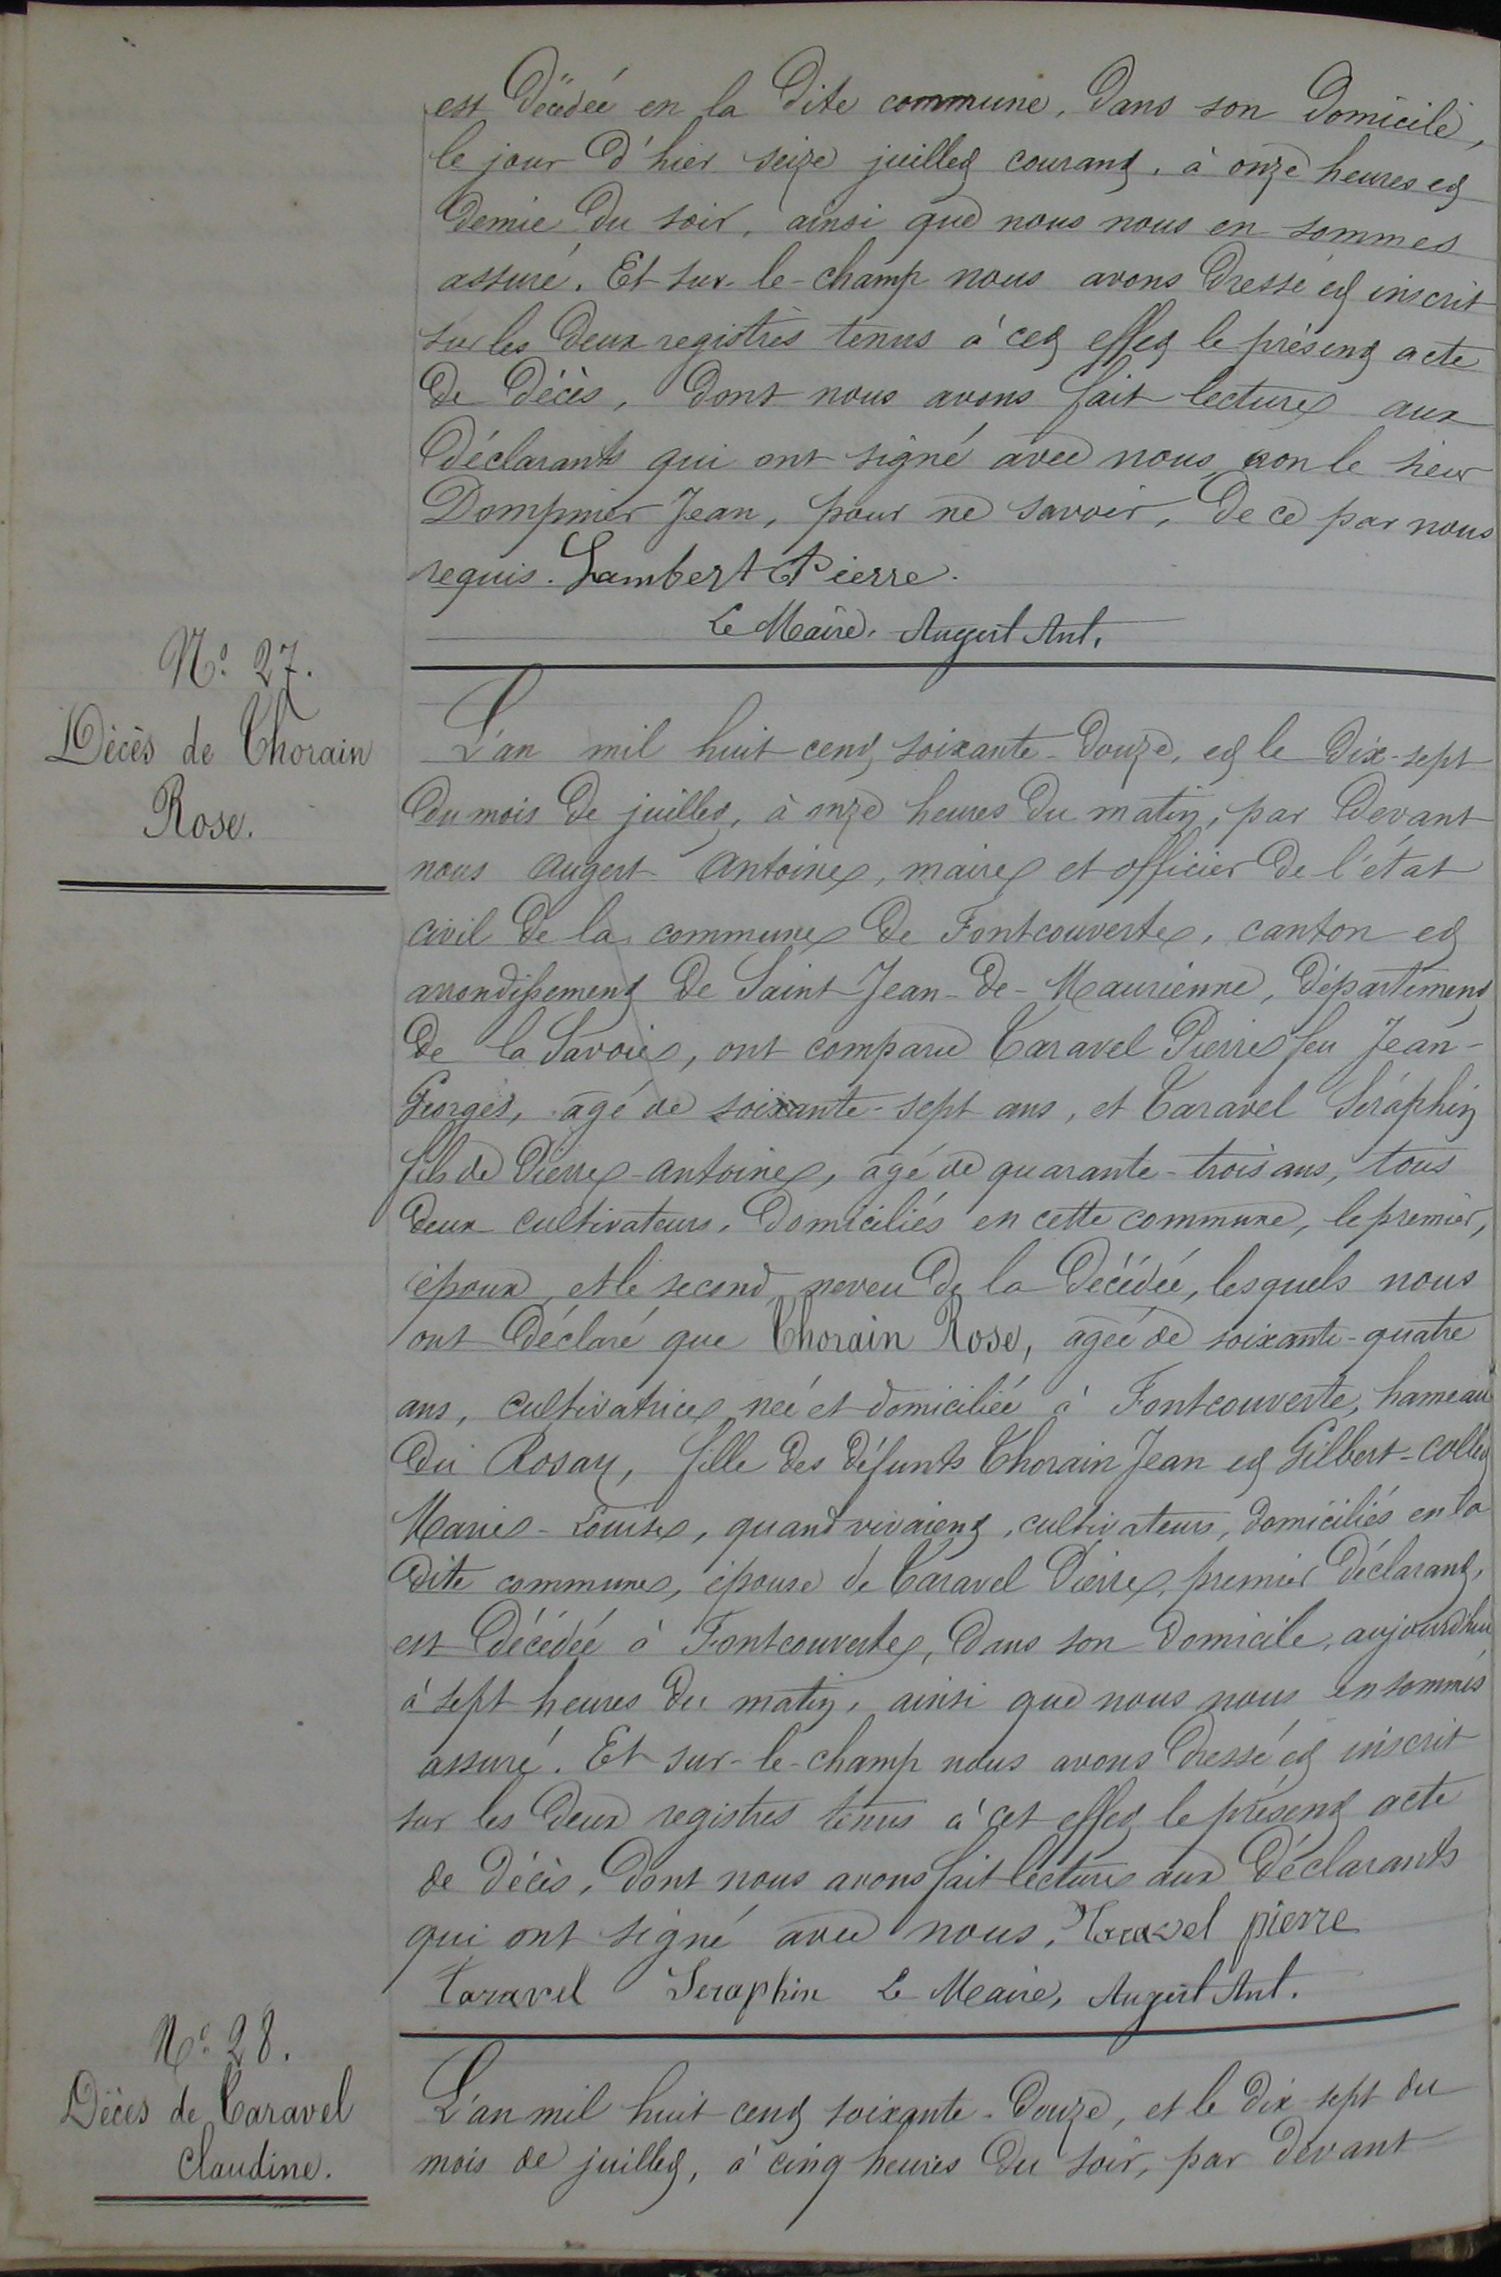 est décédée en la dite commune, dans son domicile,
le jour d'hier seize juillet courant, à onze heures et
demie du soir, ainsi que nous nous en sommes
assuré. Et sur-le-champ nous avons dressé et inscrit
sur les deux registres tenus à cet effet le présent acte
de décès, dont nous avons fait lecture aux
déclarants qui ont signé avec nous, non le sieur
Dompnier Jean, pour ne savoir, de ce par nous
requis. Lambert Pierre.
Le Maire, Augert Ant.
N° 27.
Décès de Thorain
Rose.
L'an mil huit cent soixante-douze, et le dix-sept
du mois de juillet, à onze heures du matin, par devant
nous Augert Antoine, maire et officier de l'état
civil de la commune de Fontcouverte, canton et
arrondissement de Saint-Jean-de-Maurienne, département
de la Savoie, ont comparu Taravel Pierre feu Jean-
Georges, agé de soixante-sept ans, et Taravel Séraphin
fils de Pierre-Antoine, agé de quarante-trois ans, tous
deux cultivateurs, domiciliés en cette commune, le premier,
époux, et le second neveu de la décédée, lesquels nous
ont déclaré que Thorain Rose, agée de soixante-quatre
ans, cultivatrice, née et domiciliée à Fontcouverte, hameau
du Rosay, fille des défunts Thorain Jean et Gilbert-Collet
Marie-Louise, quand vivaient, cultivateurs, domiciliés en la
dite commune, épouse de Taravel Pierre, premier déclarant,
est décédée à Fontcouverte, dans son domicile, aujourd'hui
à sept heures du matin, ainsi que nous nous en sommes
assuré. Et sur-le-champ nous avons dressé et inscrit
sur les deux registres tenus à cet effet le présent acte
de décès, dont nous avons fait lecture aux déclarants
qui ont signé avec nous. Taravel pierre
Taravel Seraphin Le Maire, Augert Ant.
N° 28.
Décès de Taravel
Claudine.
L'an mil huit cent soixante-douze, et le dix-sept du
mois de juillet, à cinq heures du soir, par devant